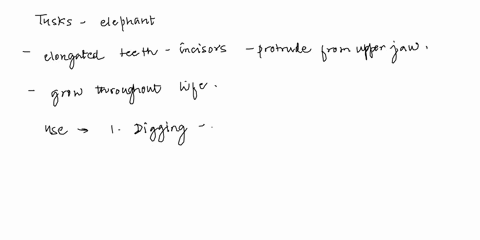 Tusks - elephant
- elongated teeth - incisors - protrude from upper jaw.
- grow throughout life.
use → 1. Digging -.